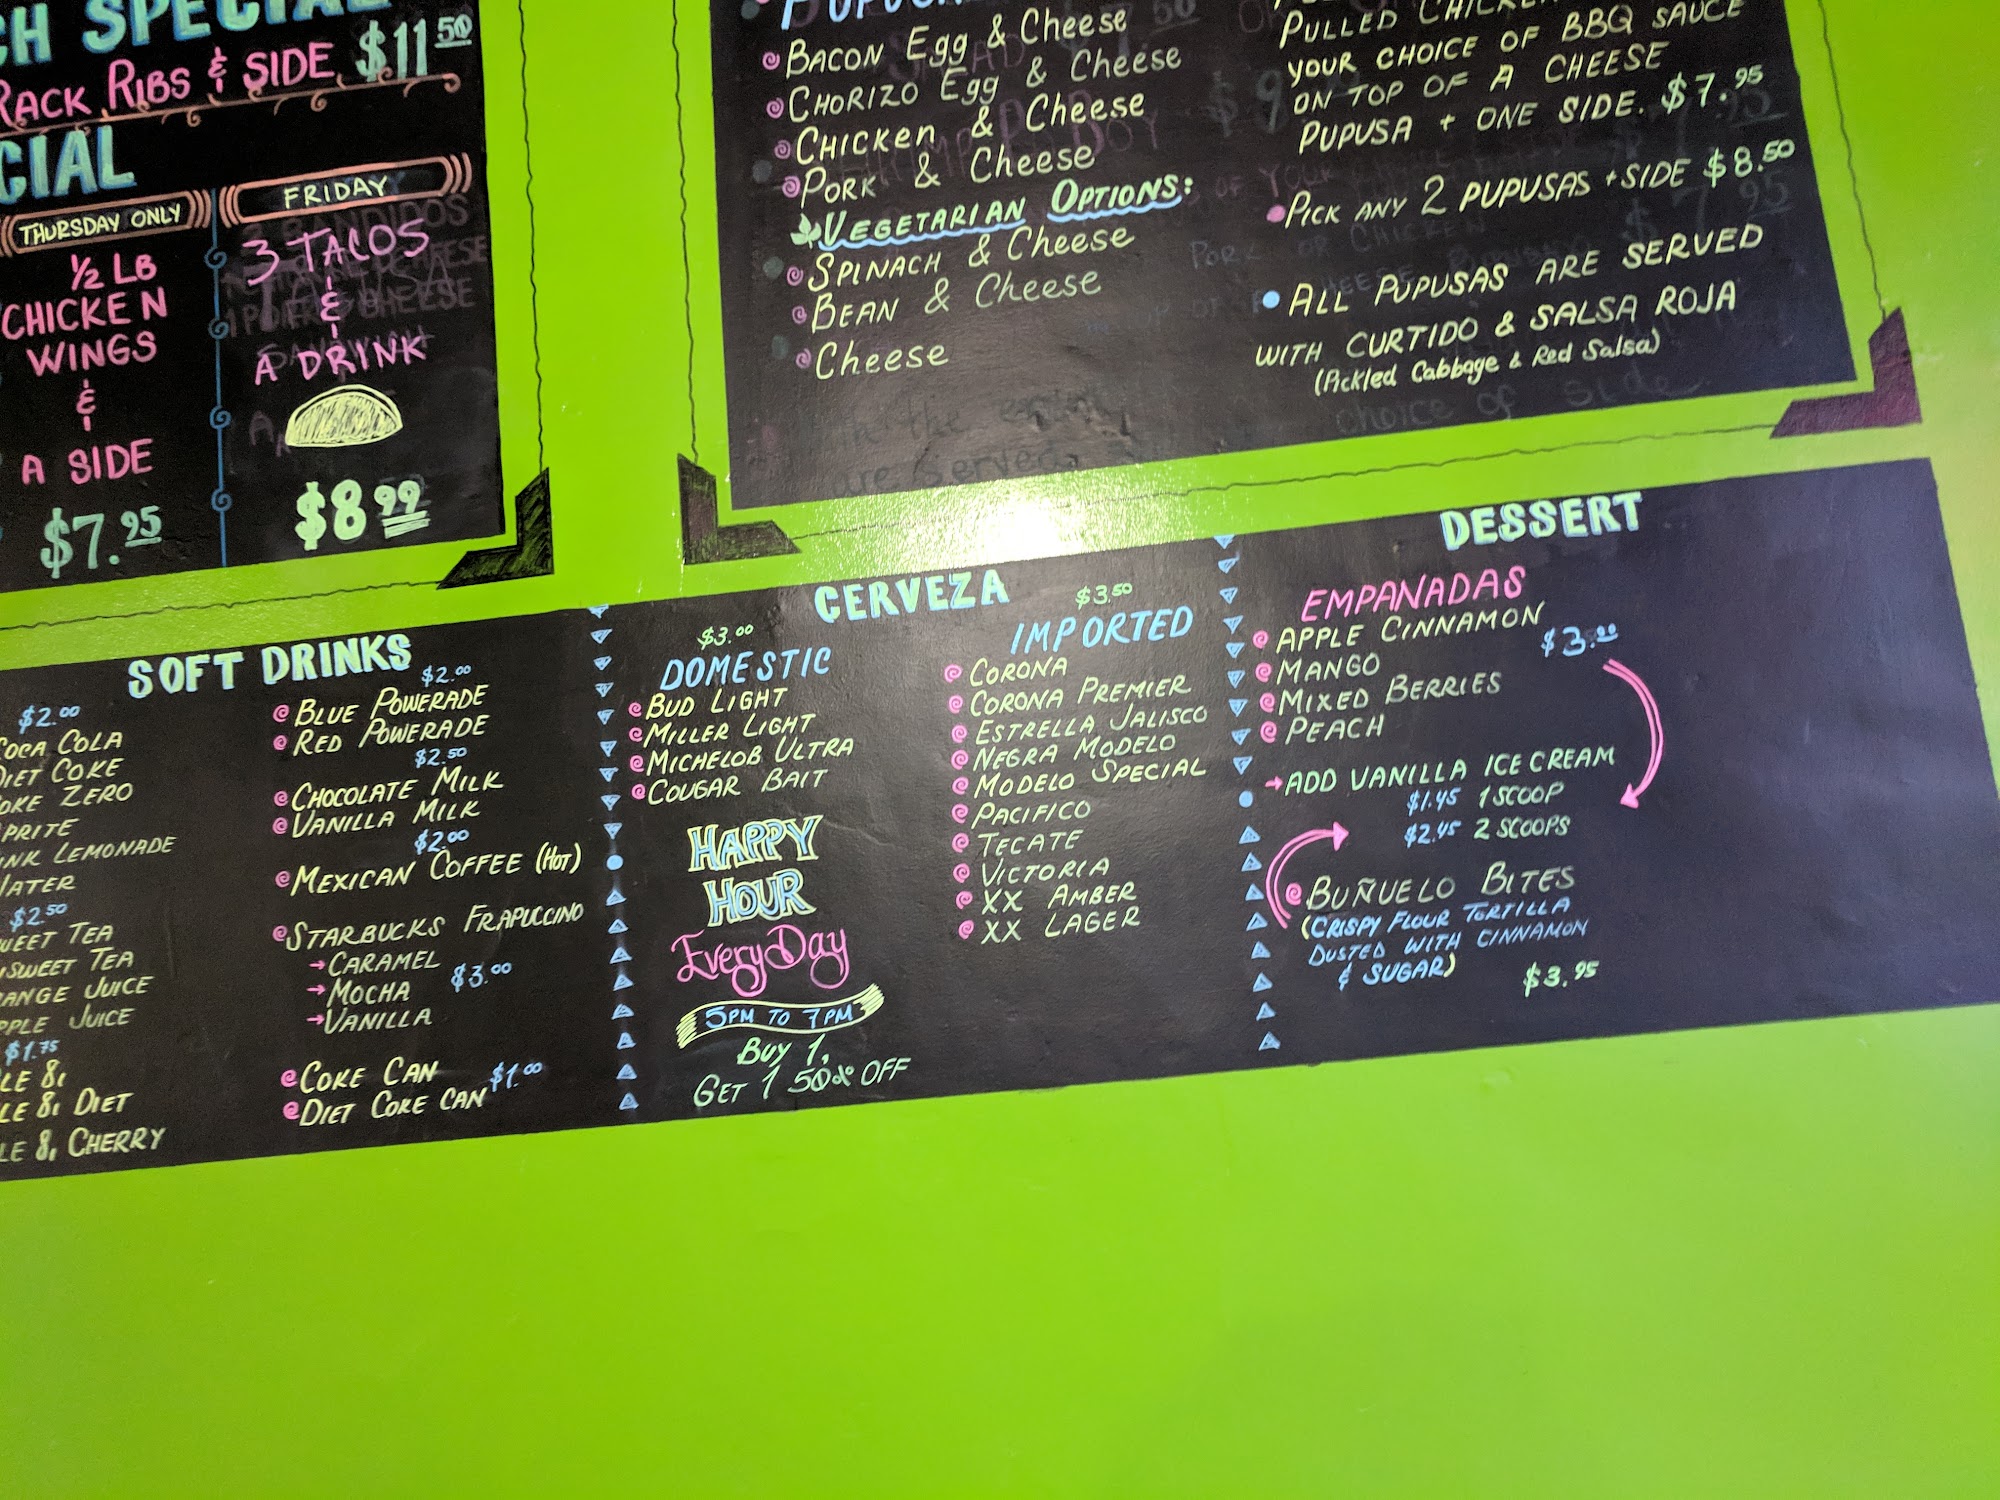 SPECIAL
RACK RIBS & SIDE $11 50
THURSDAY ONLY
1/2 LB
CHICKEN
WINGS
&
A SIDE
$7.95
FRIDAY
3 TACOS
&
A DRINK
$8 99
BACON Egg & Cheese
CHORIZO Egg & Cheese
CHICKEN & Cheese
PORK & Cheese
VEGETARIAN OPTIONS:
SPINACH & Cheese
BEAN & Cheese
Cheese
PULLED
YOUR CHOICE OF BBQ SAUCE
ON TOP OF A CHEESE
PUPUSA + ONE SIDE. $7.95
PICK ANY 2 PUPUSAS + SIDE $8.50
ALL PUPUSAS ARE SERVED
WITH CURTIDO & SALSA ROJA
(Pickled Cabbage & Red Salsa)
SOFT DRINKS
$2.00
COCA COLA
DIET COKE
ZERO
LEMONADE
$2.50
TEA
TEA
JUICE
JUICE
$1.75
8,
8, DIET
8, CHERRY
$2.00
BLUE POWERADE
RED POWERADE
$2.50
CHOCOLATE MILK
VANILLA MILK
$2.00
MEXICAN COFFEE (HOT)
STARBUCKS FRAPUCCINO
CARAMEL
MOCHA $3.00
VANILLA
COKE CAN
DIET COKE CAN $1.00
CERVEZA
$3.00
DOMESTIC
BUD LIGHT
MILLER LIGHT
MICHELOB ULTRA
COUGAR BAIT
HAPPY
HOUR
EveryDay
5PM TO 7PM
BUY 1,
GET 1 50% OFF
$3.50
IMPORTED
CORONA
CORONA PREMIER
ESTRELLA JALISCO
NEGRA MODELO
MODELO SPECIAL
PACIFICO
TECATE
VICTORIA
XX AMBER
XX LAGER
DESSERT
EMPANADAS
APPLE CINNAMON
MANGO $3.00
MIXED BERRIES
PEACH
ADD VANILLA ICE CREAM
$1.45 1 SCOOP
$2.45 2 SCOOPS
BUÑUELO BITES
(CRISPY FLOUR TORTILLA
DUSTED WITH CINNAMON
& SUGAR)
$3.95